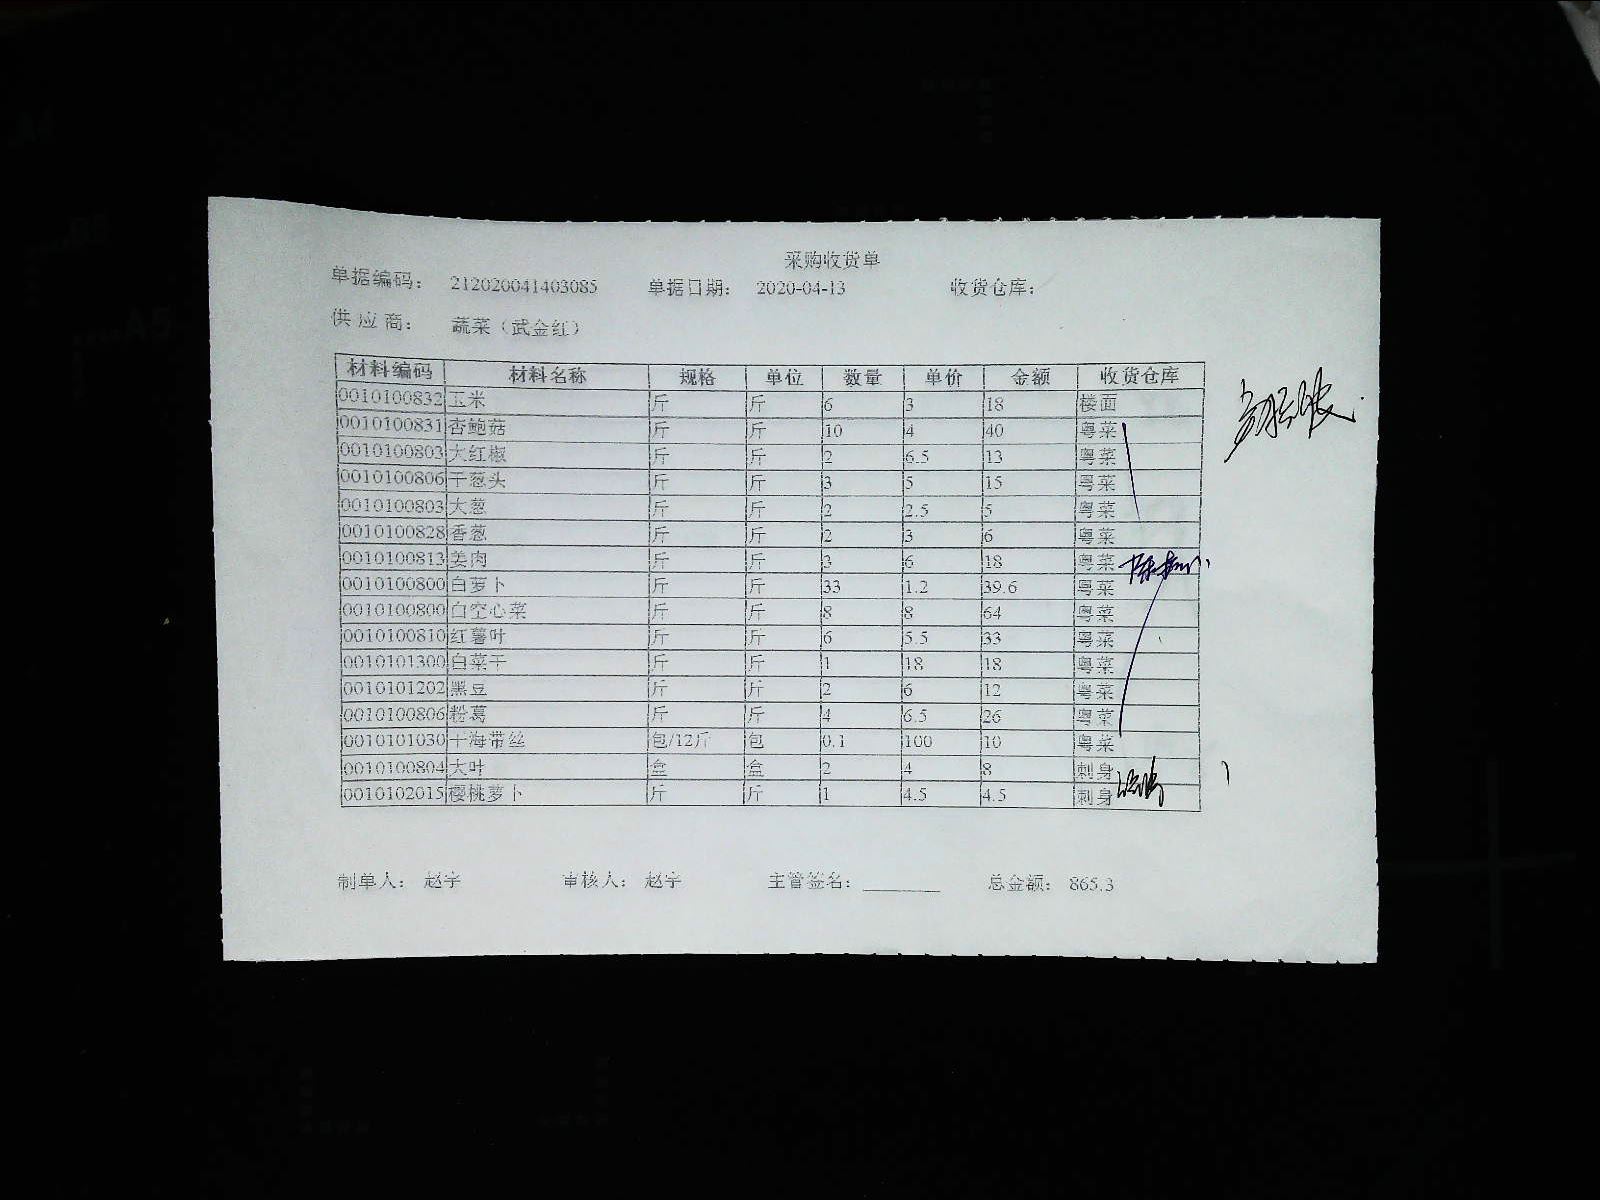 采购收货单
单据编码： 212020041403085 单据日期： 2020-04-13 收货仓库：
供应商： 蔬菜（武金红）
材料编码 材料名称 规格 单位 数量 单价 金额 收货仓库
0010100832 玉米 斤 斤 6 3 18 楼面
0010100831 杏鲍菇 斤 斤 10 4 40 粤菜
0010100803 大红椒 斤 斤 2 6.5 13 粤菜
0010100806 干葱头 斤 斤 3 5 15 粤菜
0010100803 大葱 斤 斤 2 2.5 5 粤菜
0010100828 香葱 斤 斤 2 3 6 粤菜
0010100813 姜肉 斤 斤 3 6 18 粤菜
0010100800 白萝卜 斤 斤 33 1.2 39.6 粤菜
0010100800 白空心菜 斤 斤 8 8 64 粤菜
0010100810 红薯叶 斤 斤 6 5.5 33 粤菜
0010101300 白菜干 斤 斤 1 18 18 粤菜
0010101202 黑豆 斤 斤 2 6 12 粤菜
0010100806 粉葛 斤 斤 4 6.5 26 粤菜
0010101030 干海带丝 包/12斤 包 0.1 100 10 粤菜
0010100804 大叶 盒 盒 2 4 8 刺身
0010102015 樱桃萝卜 斤 斤 1 4.5 4.5 刺身
制单人： 赵宇 审核人： 赵宇 主管签名： 总金额： 865.3